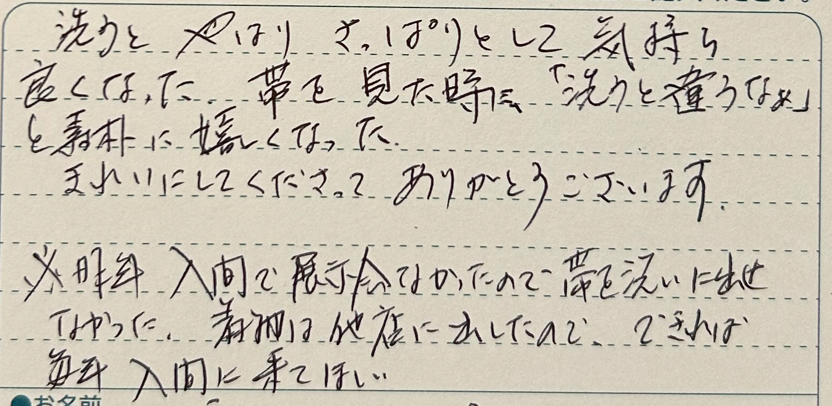 洗うと やはり さっぱりとして 気持ち
良くなった. 帯を 見た時に、「洗うと違うなぁ」
と素朴に 嬉しくなった.
きれいにしてくださって ありがとうございます.
※昨年 入間で 展示会なかったので 帯を洗いに出せ
なかった. 着物は他店に出したので、できれば
毎年 入間に 来てほしい
●お名前